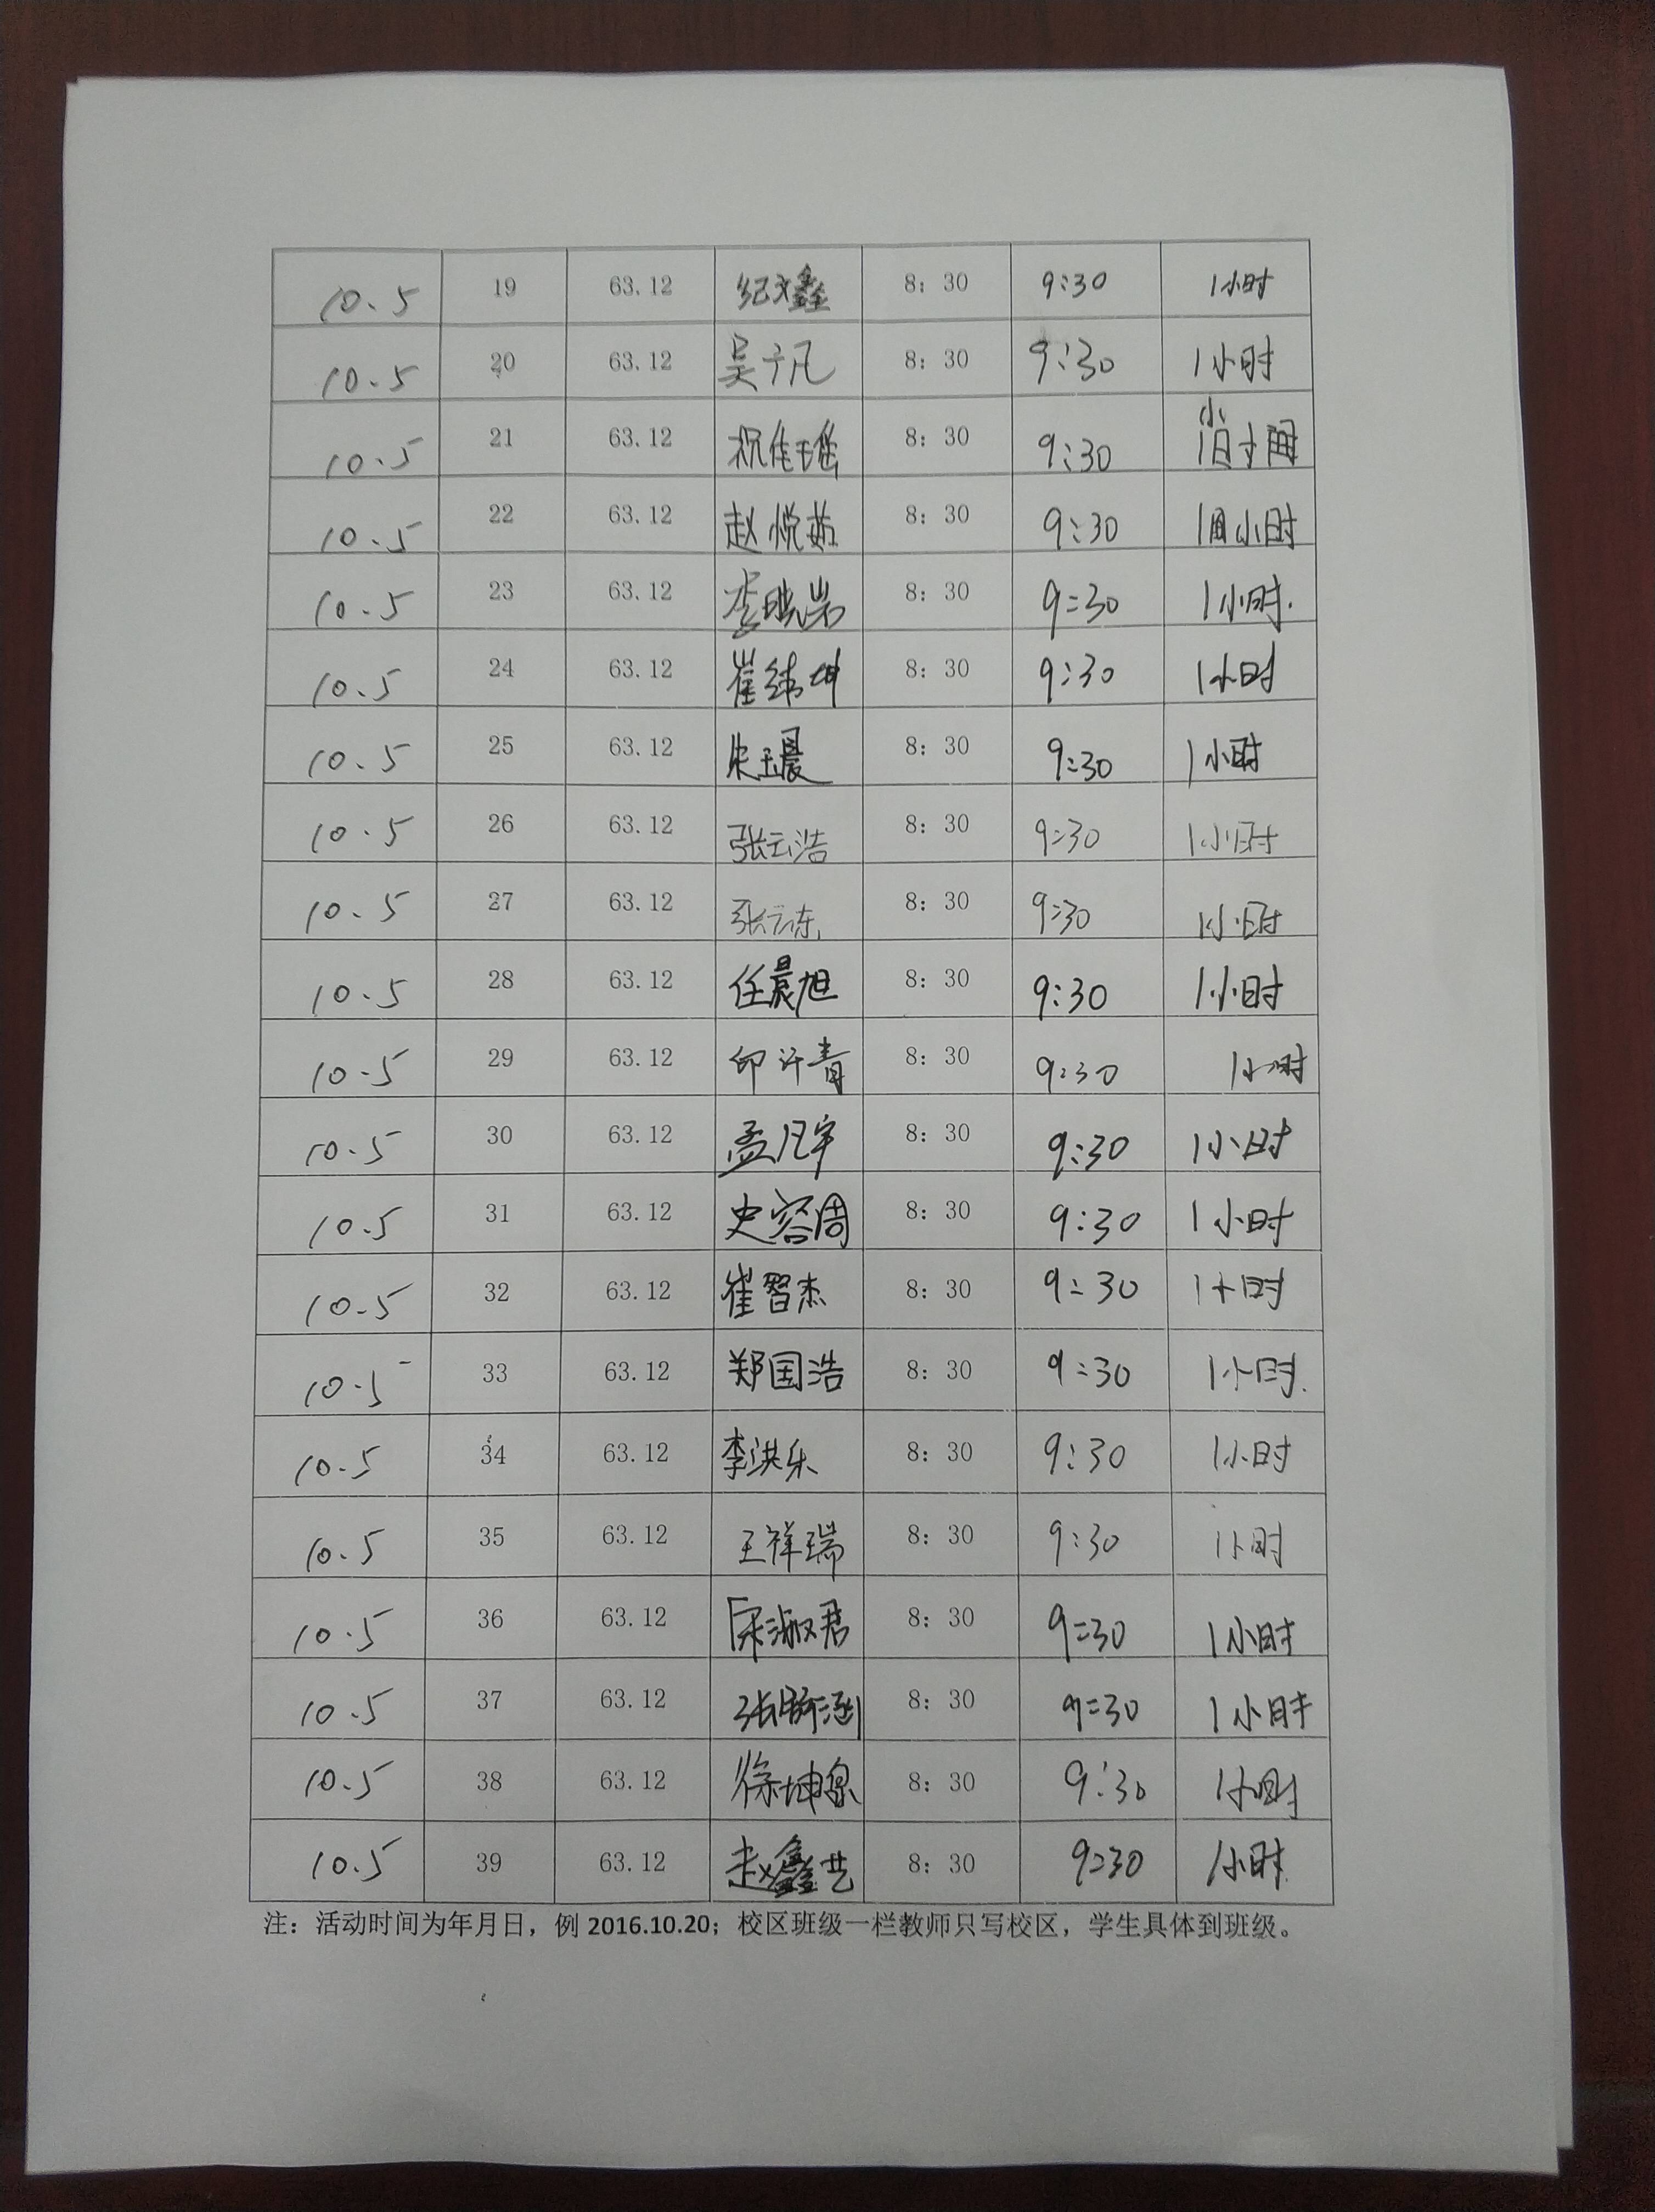 10.5 19 63.12 纪文鑫 8：30 9:30 1小时
10.5 20 63.12 吴于凡 8：30 9:30 1小时
10.5 21 63.12 祝佳瑶 8：30 9:30
10.5 22 63.12 赵悦茹 8：30 9:30 1小时
10.5 23 63.12 李晓岩 8：30 9:30 1小时.
10.5 24 63.12 崔纬坤 8：30 9:30 1小时
10.5 25 63.12 8：30 9:30 1小时
10.5 26 63.12 张云浩 8：30 9:30 1小时
10.5 27 63.12 张云东 8：30 9:30 1小时
10.5 28 63.12 任晨旭 8：30 9:30 1小时
10.5 29 63.12 8：30 9:30 1小时
10.5 30 63.12 孟凡宇 8：30 9:30 1小时
10.5 31 63.12 史容周 8：30 9:30 1小时
10.5 32 63.12 崔智杰 8：30 9:30 1小时
10.5 33 63.12 郑国浩 8：30 9:30 1小时.
10.5 34 63.12 李洪乐 8：30 9:30 1小时
10.5 35 63.12 王祥瑞 8：30 9:30 1小时
10.5 36 63.12 8：30 9:30 1小时
10.5 37 63.12 8：30 9:30 1小时
10.5 38 63.12 8：30 9:30 1小时
10.5 39 63.12 赵鑫艺 8：30 9:30 1小时
注：活动时间为年月日，例 2016.10.20；校区班级一栏教师只写校区，学生具体到班级。